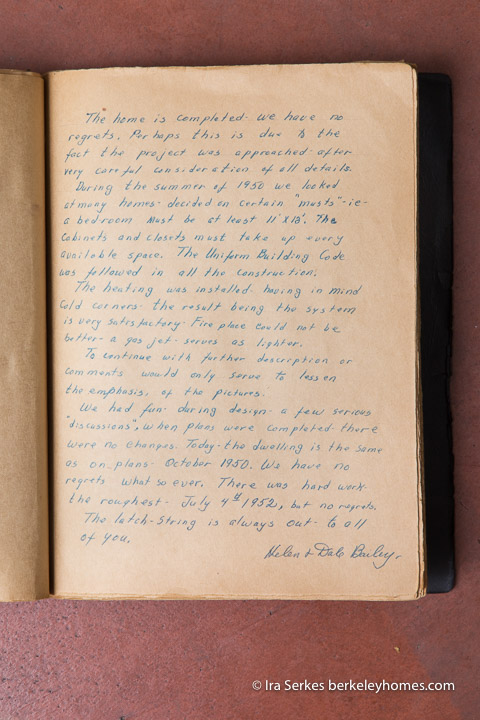 The home is completed- we have no
regrets. Perhaps this is due to the
fact the project was approached- after
very careful consideration of all details.
During the summer of 1950 we looked
at many homes- decided on certain "musts"- ie-
a bedroom must be at least 11'X13'. The
Cabinets and closets must take up every
available space. The Uniform Building Code
was followed in all the construction.
The heating was installed- having in mind
cold corners- the result being the system
is very satisfactory- Fire place could not be
better- a gas jet- serves as lighter.
To continue with further description or
comments would only serve to lessen
the emphasis, of the pictures.
We had fun- during design- a few serious
"discussions", when plans were completed- there
were no changes. Today- the dwelling is the same
as on plans- October 1950. We have no
regrets what so ever. There was hard work-
the roughest- July 4th 1952, but no regrets.
The latch-string is always out- to all
of you.
Helen & Dale Bailey.
© Ira Serkes berkeleyhomes.com